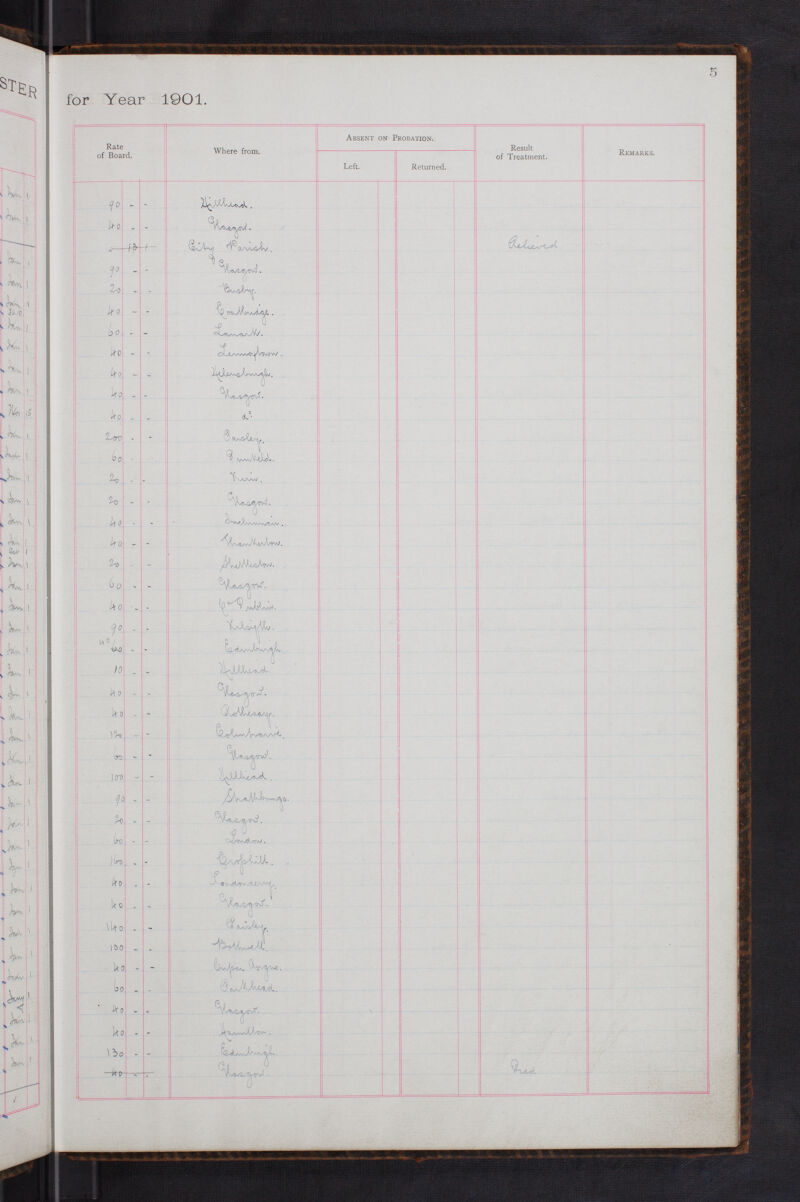 STER
5
for Year 1901.
Rate of Board. Where from. Absent on Probation. Result of Treatment. Remarks.
Left. Returned.
90 - - Hillhead.
40 - - Glasgow.
13 1 City Parish. Relieved
90 - - Glasgow.
20 - - Busby.
40 - - Coatbridge.
60 - - Lanark.
40 - - Lennoxtown.
40 - - Helensburgh.
40 - - Glasgow.
40 - - do
200 - - Paisley.
60 - - Dunkeld.
20 - -
20 - - Glasgow.
40 - - Inchinnan.
40 - - Thankerton.
20 - - Shettleston.
60 - - Glasgow.
40 - - Co Dublin.
90 - - Kilsyth.
40 60 - - Edinburgh
10 - - Hillhead
40 - - Glasgow.
40 - - Rothesay.
120 - -
60 - - Glasgow.
100 - - Hillhead.
90 - - Strathbungo.
20 - - Glasgow.
60 - - London.
160 - - Crosshill.
40 - - Londonderry.
40 - - Glasgow.
140 - - Fairley.
130 - - Bothwell.
40 - - Cupar Angus.
60 - - Parkhead.
40 - - Glasgow.
40 - - Hamilton.
130 - - Edinburgh
40 - - Glasgow. Died